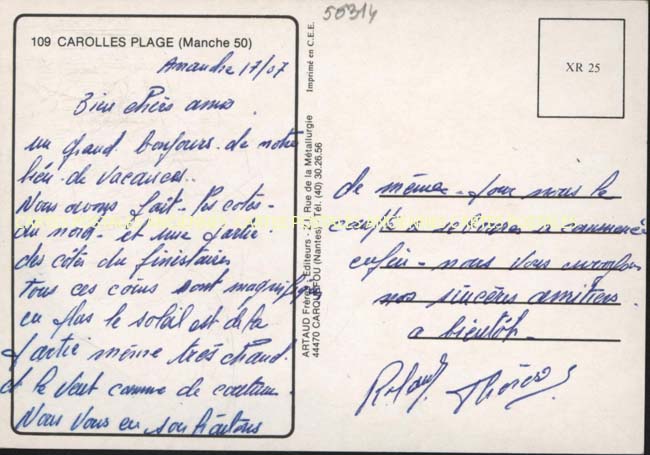 50314
109 CAROLLES PLAGE (Manche 50)
17/07
Bien chers amis
un grand bonjour de notre
lieu de vacances.
Nous avons fait les côtes
du nord et une partie
des côtes du finistaires
tous ces coins sont magnifiques
en plus le soleil est de la
partie même très chaud.
et le vent comme de coutume
Nous vous en souhaitons
Imprimé en C.E.E.
ARTAUD Frères Éditeurs - Rue de la Métallurgie
44470 CARQUEFOU (Nantes) - Tél. (40) 30.26.56
XR 25
de même pour nous le
compte à commencé
enfin nous vous envoyons
nos sincères amitiés.
a bientôt.
Roland Thérèse